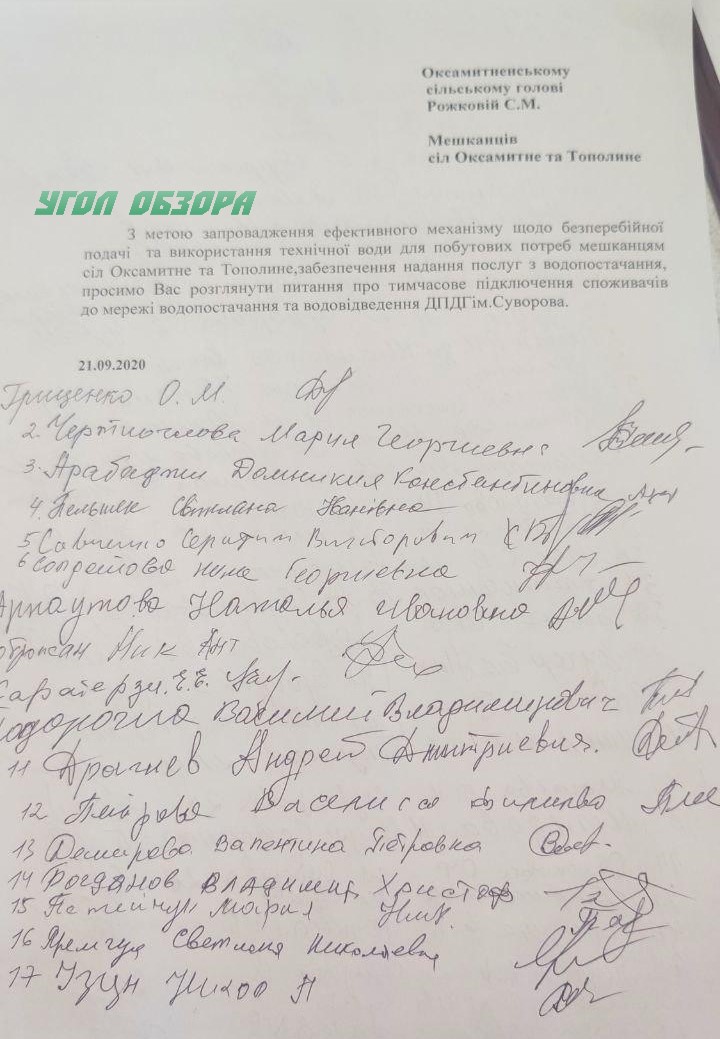 Оксамитненському
сільському голові
Рожковій С.М.
Мешканців
сіл Оксамитне та Тополине
УГОЛ ОБЗОРА
З метою запровадження ефективного механізму щодо безперебійної
подачі та використання технічної води для побутових потреб мешканцям
сіл Оксамитне та Тополине,забезпечення надання послуг з водопостачання,
просимо Вас розглянути питання про тимчасове підключення споживачів
до мережі водопостачання та водовідведення ДПДГім.Суворова.
21.09.2020
Грищенко О. М.
2. Мария Георгиевна
3. Арабаджи Домникия Константиновна
4. Пельшек Світлана Іванівна
5. Савченко Серафим Викторович
6 Нина Георгиевна
Арнаутова Наталья Ивановна
Ник Ант
Е.Е.
Тодорогла Василий Владимирович
11 Драгнев Андрей Дмитриевич.
12 Василиса
13 Демирова Валентина Петровна
14 Богданов Владимир Христоф
15 Мария
16 Яремчук Светлана Николаевна
17 Узун П